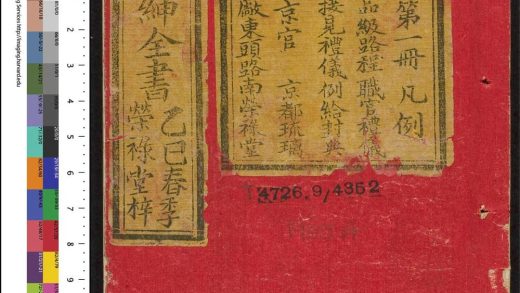 第一冊凡例
品級路程職官禮儀
接見禮儀例給封典
京官 京都琉璃
廠東頭路南榮祿堂
紳全書乙巳春季
榮祿堂梓
4726.9/4352
3
4
5
6
7
8
9